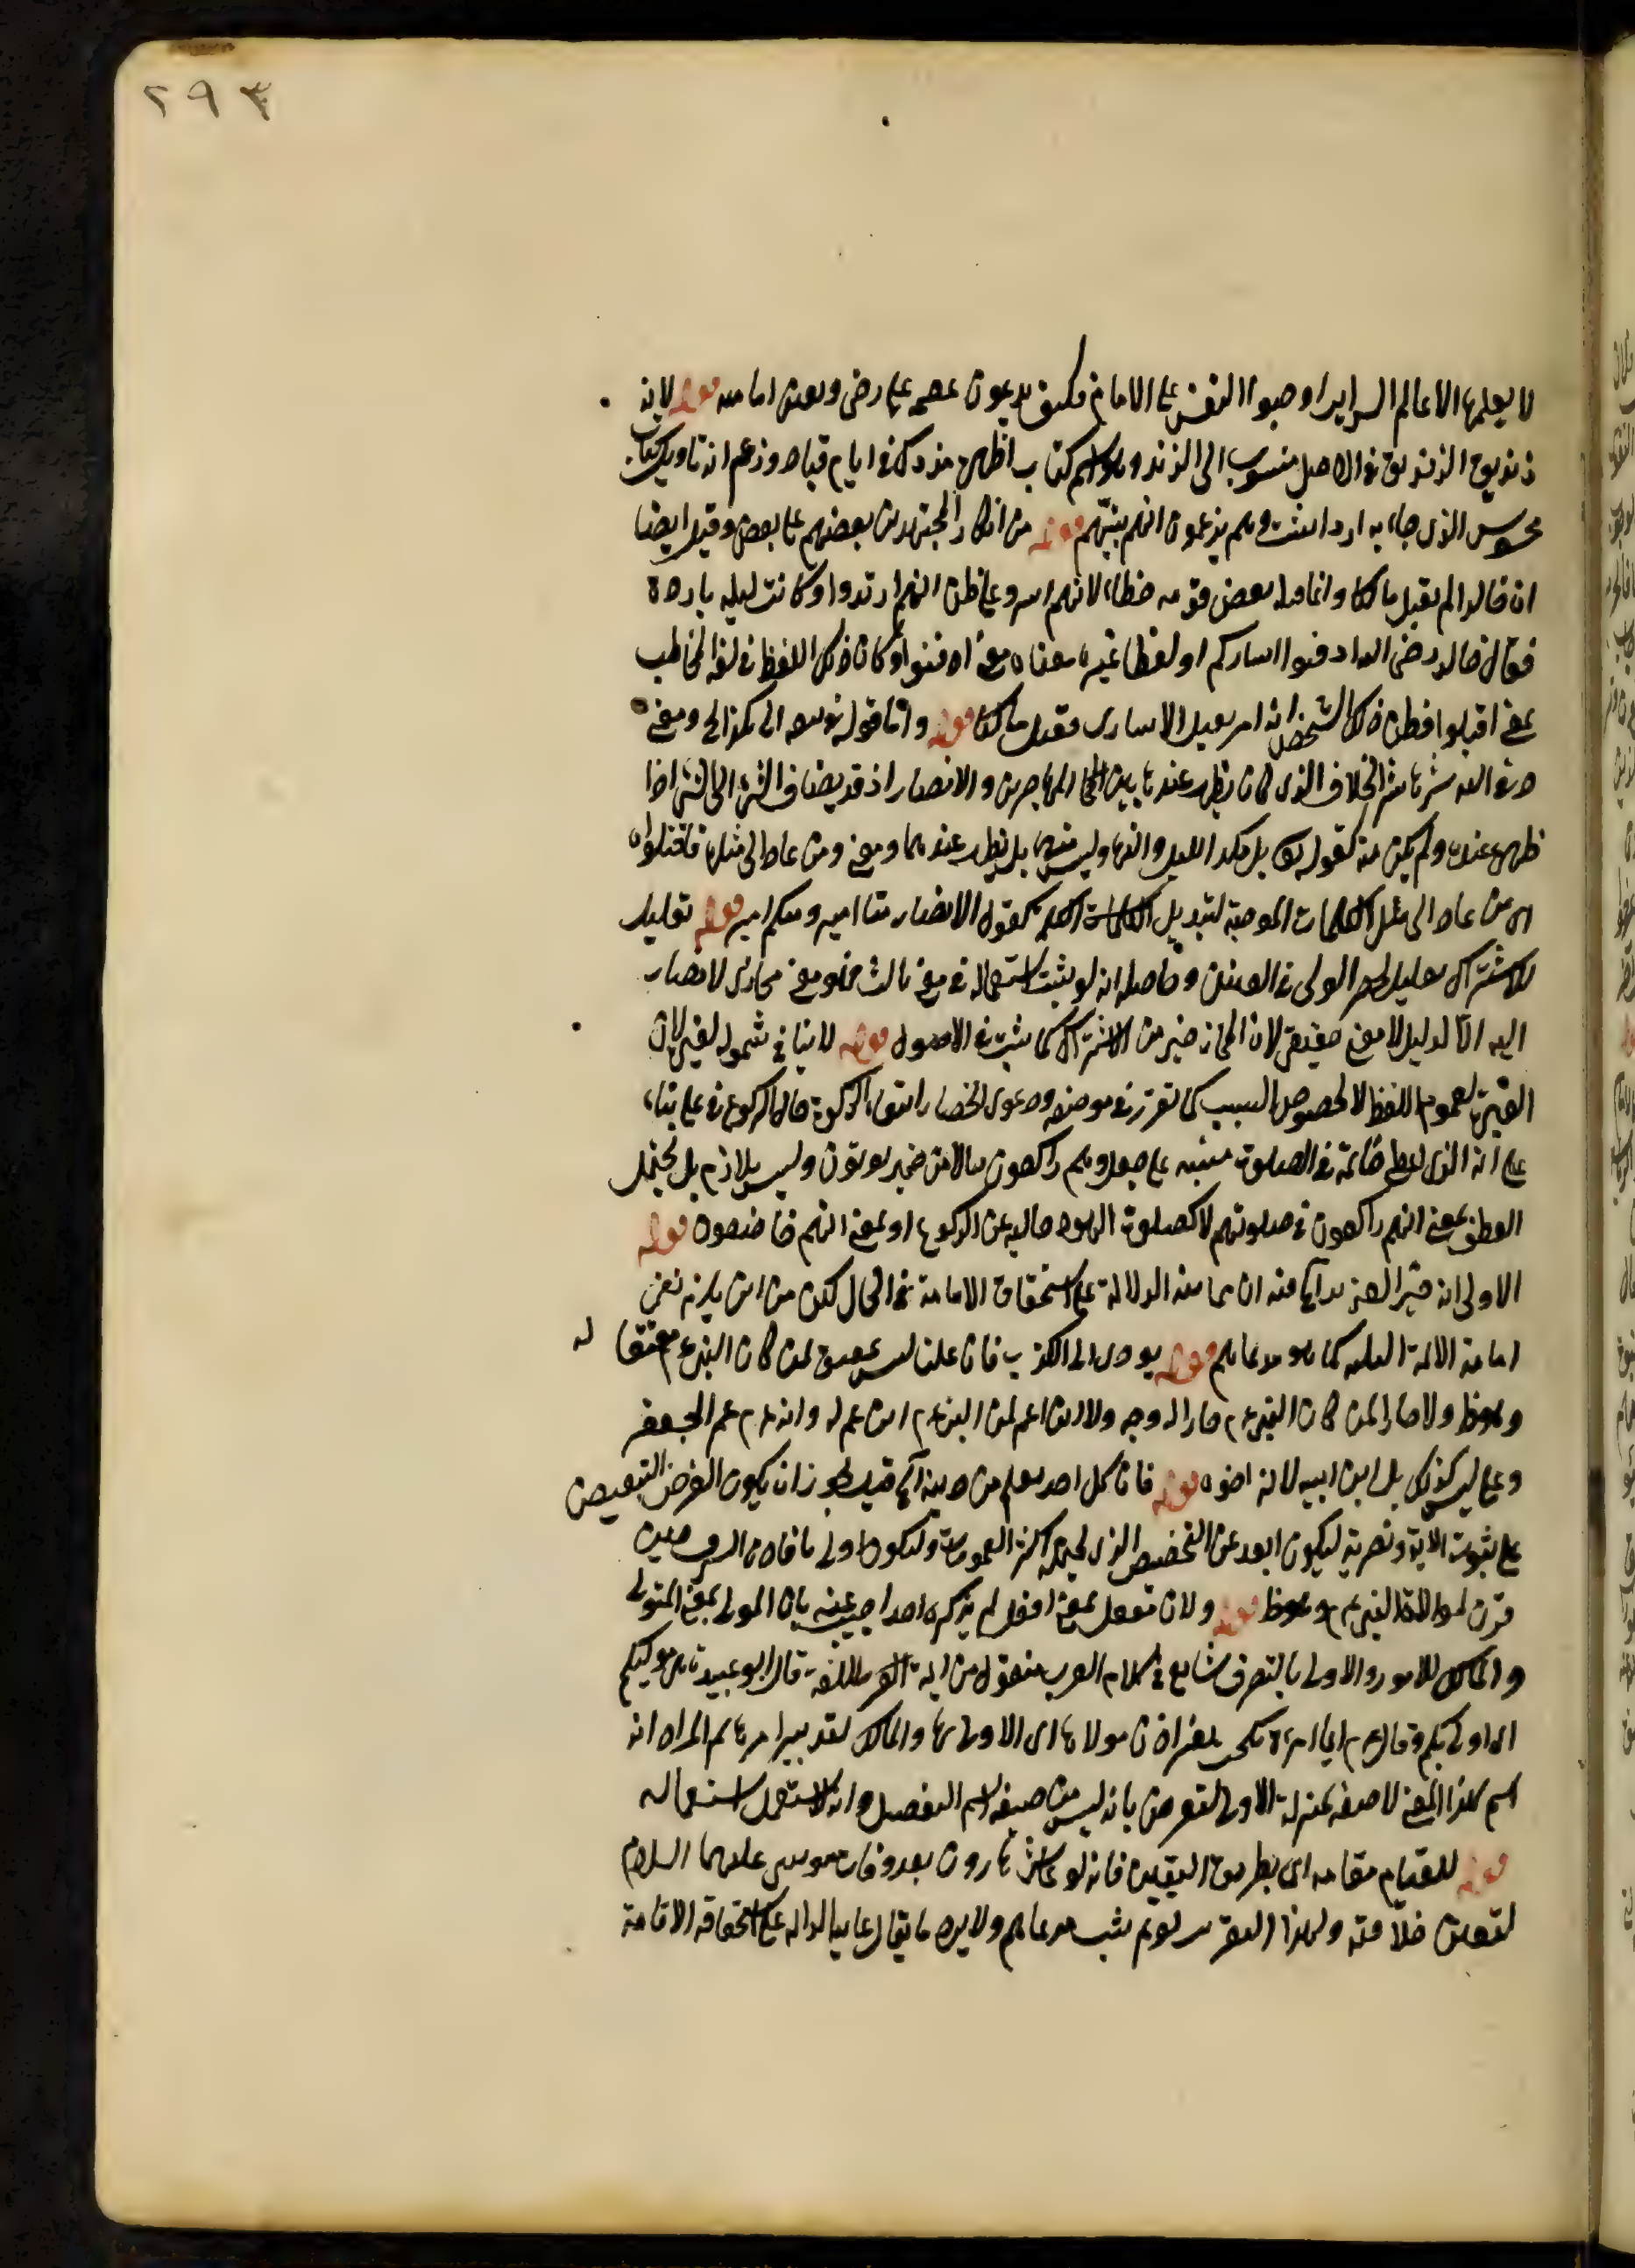 ٢٩٣
لا يعلمها الا عالم السراير اوجبوا النص على الامام فكيف يدعون عصمة علي رضى وتعين امامته قوله لانه
زنديق الزنديق في الاصل منسوب الى الزند وهو اسم كتاب اظهره مزدك في ايام قباد وزعم انه تاويل كتاب
مجوس الذي جاء به زرادشت وهم يزعمون انه نبيهم قوله من انكار المجتهدين بعضهم على بعض وقيل ايضا
ان خالدا لم يقتل مالكا وانما قتله بعض قومه خطاء لانهم اسروا على ظن انهم ارتدوا وكانت ليلة باردة
فقال خالد رضى الله ادفئوا اساركم او لفظا غيره معناه معنى ادفئوا وكان ذلك اللفظ في لغة المخاطب
بمعنى اقتلوا فظن ذلك الشخص انه امر بقتل الاسارى فقتل مالكا قوله واما قوله توسعه الى
وقى الله شرها شر الخلاف الذي كاد يظهر عندها بين المهاجرين والانصار اذ قد يضاف الشئ الى الشئ اذا
ظهر عنده ولم يكن منه كقوله تعالى بل مكر الليل والنهار وليس منهما بل يظهر عندهما ومعنى ومن عاد الى مثلها فاقتلوه
اى من عاد الى مثل الكلمات الموجبة لتبديل الكلمة كقول الانصار منا امير ومنكم امير قوله تقليلا
للاشتراك تعليل لحصر الولى في المعنيين وحاصله انه لو يثبت استعماله في معنى ثالث فهو معنى مجازى لا يصار
اليه الا لدليل لا معنى حقيقى لان المجاز خير من الاشتراك كما يثبت في الاصول قوله لا ينافي شموله لغيره لان
العبرة لعموم اللفظ لا لخصوص السبب كما تقرر في موضعه ودعوى انحصار ايتاء الزكوة حال الركوع في على بناء
على انه الذي اعطى خاتمه في الصلوة مبنية على جعل وهم راكعون حالا من ضمير يؤتون وليس بلازم بل يحتمل
العطف بمعنى انهم راكعون في صلوتهم لا كصلوة اليهود خالية عن الركوع او بمعنى انهم خاضعون قوله
الاولى انه حصر الى اخره ان هنا الدلالة على استحقاق الامامة في الحال لكن من اين يلزم نفى
امامة الائمة الثلثة كما هو مدعاهم قوله يؤدى الى الكذب فان عليا ليس بمعتق لمن كان النبي عم معتقا له
وهو ظ ولا جارا لمن كان النبي عم جارا له ولا ابن عم لمن النبي عم ابن عم له وانه عم عم الجعفر
وعلى ليس كذلك بل ابن ابيه لانه اخوه قوله فان كل احد يعلم من دينه قيل يجوز ان يكون الغرض التنصيص
على ثبوت الاية ونصرته ليكون ابعد عن التخصيص الذي يحتمله اكثر العمومات وليكون اولى بافادة الشرف حيث
قرن لموالاة النبي عم وهو ظ قوله ولان مفعل بمعنى افعل لم يذكره احد اجيب عنه بان المولى بمعنى المتولى
والمالك للامور والاولى بالتصرف شايع في كلام العرب منقول من ائمة اللغة قال ابو عبيدة هى موليكم
اى اولى بكم وقال عم ايما امرأة نكحت بغير اذن مولاها اى الاولى بها والمالك لتدبير امرها ثم المراد انه
اسم لهذا المعنى لا صفة بمنزلة الاولى ليعترض بانه ليس من صيغة اسم التفضيل وانه لا يستعمل استعماله
قوله للقيام مقامه اى بطريق اليقين فانه لو عاش هارون بعد وفات موسى عليهما السلام
لتعين خلافته ولهذا التقرير لو تم يثبت مدعاهم ولا يرد ما يقال على استحقاقه الامامة